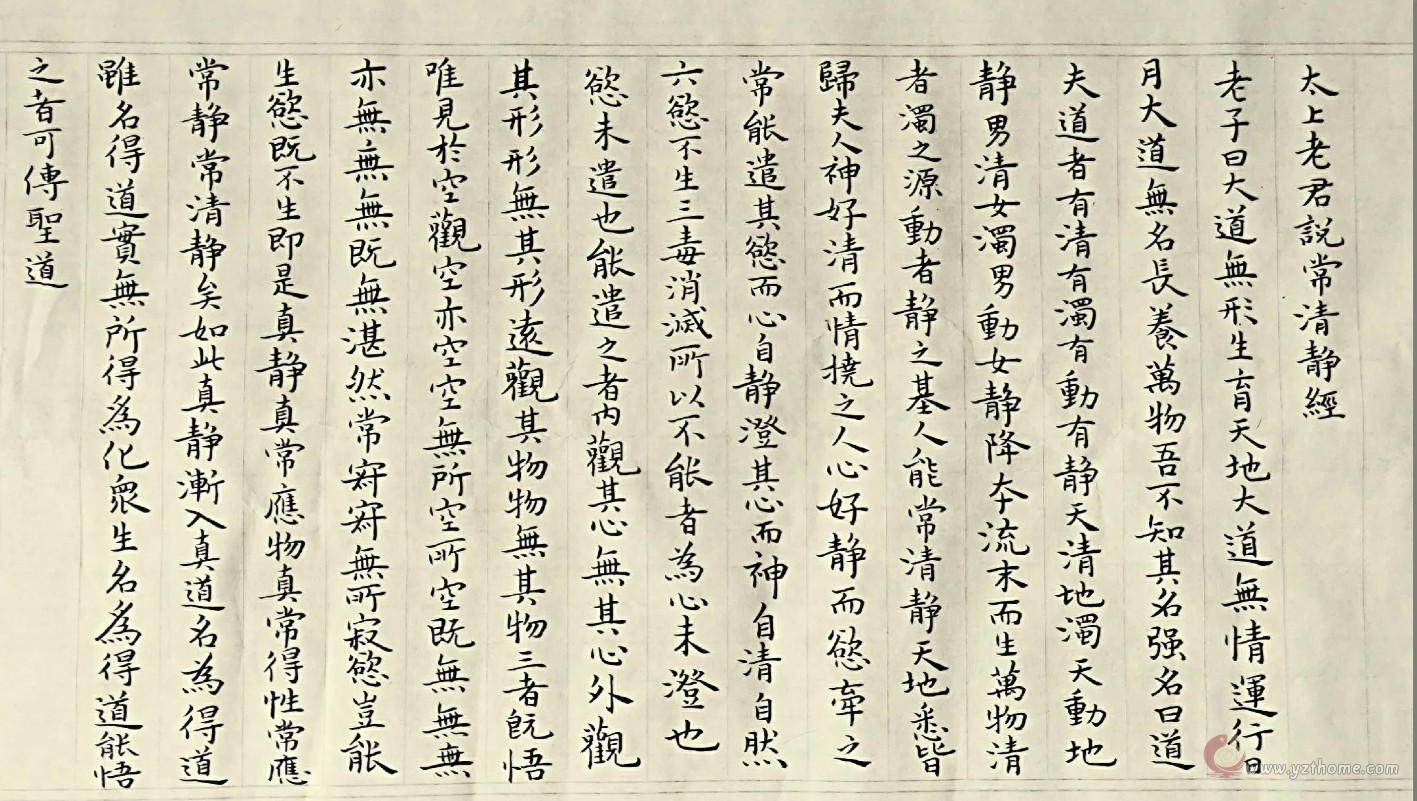 太上老君説常清静經
老子曰大道無形生育天地大道無情運行日
月大道無名長養萬物吾不知其名强名曰道
夫道者有清有濁有動有静天清地濁天動地
静男清女濁男動女静降夲流末而生萬物清
者濁之源動者静之基人能常清静天地悉皆
歸夫人神好清而情撓之人心好静而慾牽之
常能遣其慾而心自静澄其心而神自清自然
六慾不生三毒消滅所以不能者為心未澄也
慾未遣也能遣之者内觀其心無其心外觀
其形形無其形遠觀其物物無其物三者既悟
唯見於空觀空亦空空無所空所空既無無無
亦無無無既無湛然常寂寂無所寂慾豈能
生慾既不生即是真静真常應物真常得性常應
常静常清静矣如此真静漸入真道名為得道
雖名得道實無所得為化衆生名為得道能悟
之者可傳聖道
www.yzthome.com